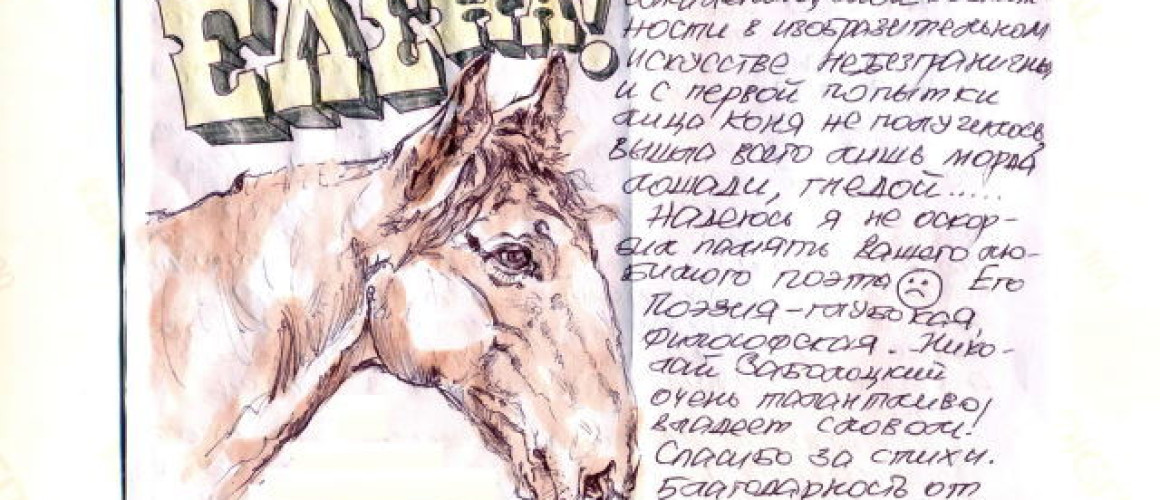 ЕЛЕНА!
ности в изобразительном
искусстве небезграничны,
и с первой попытки
лица коня не получилось,
вышла всего лишь морда
лошади, гнедой.....
Надеюсь я не оскор-
бил память вашего лю-
бимого поэта Его
Поэзия-глубокая,
философская. Нико-
лай Заболоцкий
очень талантливо
владеет словом!
Спасибо за стихи.
Благодарность от